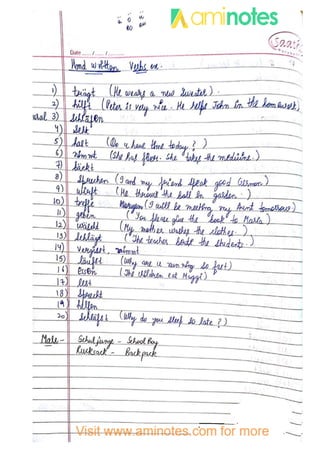 ä ö ü
aminotes
Date
And written Verbs are
1) trägt (He wears a new Sweater.)
2) hilft (Peter is very nice. He helps John in the homework)
3) schlafen
4)
5) hast (Do u have time today?)
6) nimmt (She has fever. She takes the medicine.)
7)
8) sprechen (I and my friend speak good German)
9) wirft (He throws the ball in garden.)
10) treffe (I will be meeting my Aunt tomorrow)
11) geben (You please give the book to Maria)
12) wäscht (My mother washes the clothes.)
13) schlägt (The teacher beats the students.)
14) vergisst, nimmt
15) läufst (Why are u running so fast)
16) essen (The children eat Maggi)
17) lest
18) spricht
19) helfen
20) schläfst (Why do you sleep so late?)
Male - Schuljunge - School Boy
Rucksack - Backpack
Visit www.aminotes.com for more